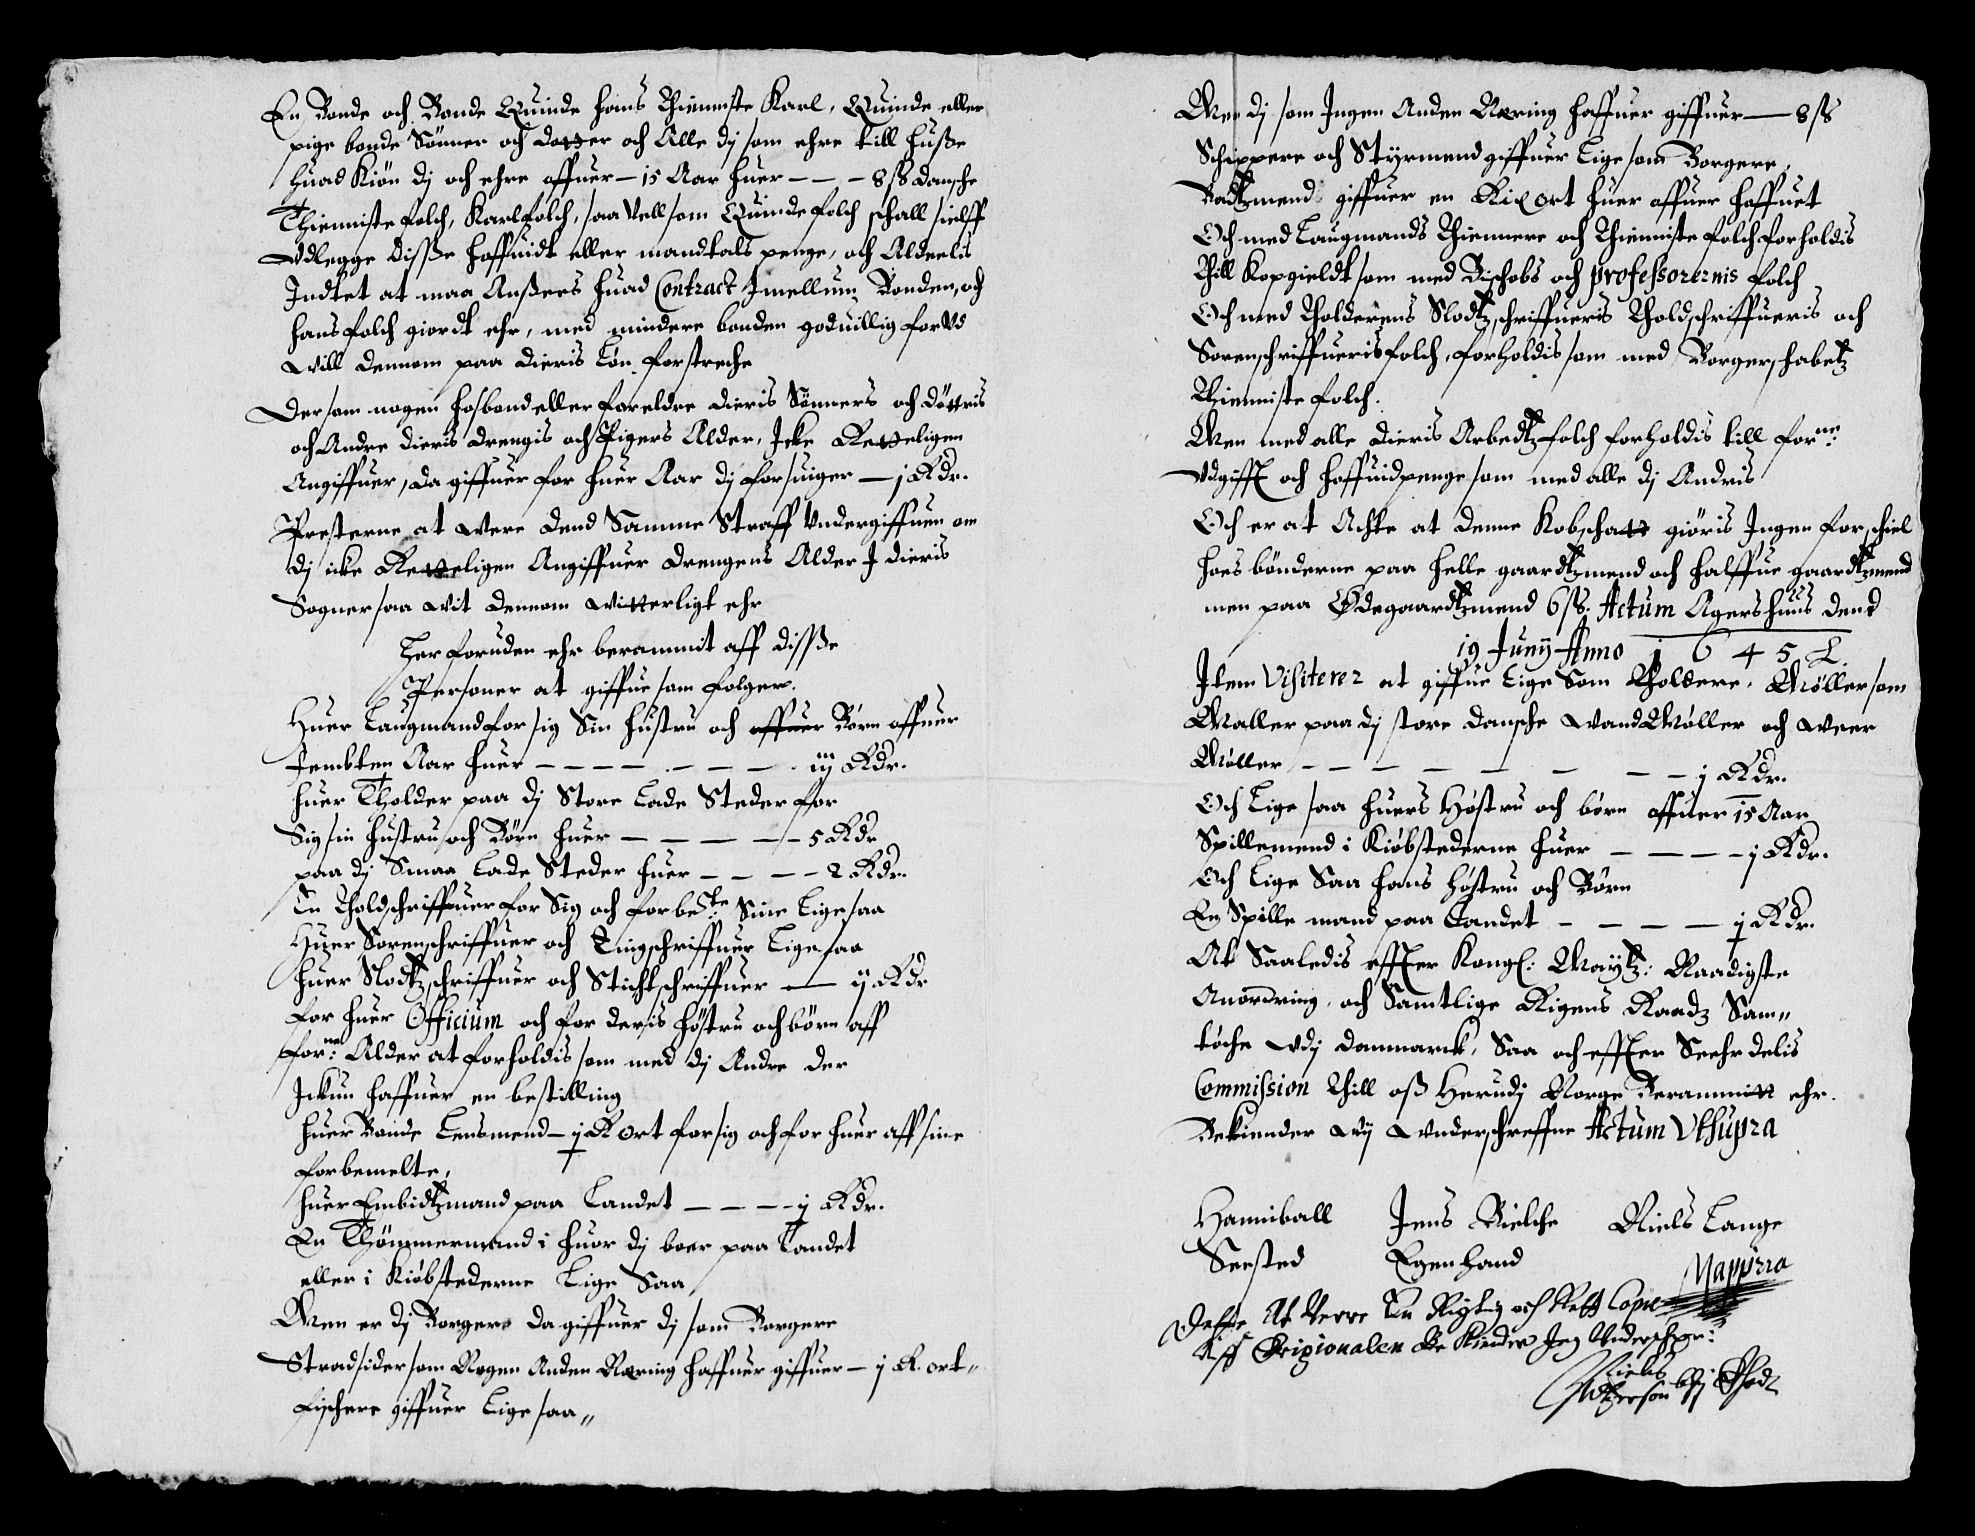 En Bonde och Bonde Quinde hans Thienniste Karl, Quinde eller
pige bonde Sönner och dotter och Alle dj som ehre till huße
huad Kiön dj och ehre offuer — 15 Aar huer — — — 8 ß dansche
Thienniste folch, Karlfolch, saa Vell som Quinde folch schall sielff
Vdlegge diße hoffuidt eller mandtals penge, och Aldeelis
Indtet at maa Anßees huad Contract Imellum Bonden, och
hans folch giordt ehr, med mindere bonden goduillig for Vd
will dennom paa dieris Lön forstreche
Dersom nogen hosbond eller foreldre dieris Sönners och döttris
och Andre dieris drengis och Pigers Alder, Icke Retteligen
Angiffuer, da giffuer for huer Aar dj forsuiger — j Rdr.
Presterne at were dend Samme Straff Vndergiffuen om
dj icke Retteligen Angiffuer drengens Alder J dieris
Sogner saa wit dennom witterligt ehr
Her foruden ehr berammit aff diße
Personer at giffue som folger.
Huer Laugmand for sig Sin hustru och offuer Börn offuer
Fembten Aar huer — — — — — — — iij Rdr.
huer Tholder paa dj Store Lade Steder for
Sig sin hustru och Börn huer — — — — — 5 Rdr
paa dj Smaa Lade Steder huer — — — — 2 Rdr.
En Tholdschriffuer for Sig och forbete: Sine Lige saa
Huer Sorenschriffuer och Tingschriffuer Lige saa
huer Slodtzschriffuer och Stichtschriffuer — ij Rdr
for huer Officium och for deris höstru och börn aff
forne: Alder at forholdis som med dj Andre der
Ickun haffuer en bestilling
huer Bonde Lensmend — j R ort for sig och for huer aff sine
forbemelte,
huer Embidtzmand paa Landet — — — — j Rdr.
En Thömmermand i huor dj boer paa Landet
eller i Kiöbstederne Lige Saa
Men er dj Borger da giffuer dj som Borgere
Strandsider som Nogen Anden Næring haffuer giffuer — j R. ort„
Fischere giffuer Lige saa„
Men dj som Ingen Anden Næring haffuer giffuer — 8 ß
Schippere och Styrmend giffuer Lige som Borgere,
Baadtzmend giffuer en Rix ort huer offuer hoffuet
Och med Laugmands Thiennere och Thienniste folch forholdis
Till Kopgieldt som med Bischobs och professorernis folch
Och med Tholderens Slodtzschriffueris Tholdschriffueris och
Sorenschriffueris folch, forholdis som med Borgerschabetz
Thienniste folch.
Men med alle dieris Arbedtzfolch forholdis till forne:
Vdgifft och hoffuidpenge som med alle dj Andris
Och er at Achte at denne Kobschatt giöris Ingen forschiel
hoes bönderne paa helle gaardtzmend och halffue gaardtzmend
men paa Ödegaardtzmend 6 ß. Actum Agershuus dend
19 Junij Anno 1 6 4 5
Item Visiterer at giffue Lige Som Tholdere. Møller som
Maller paa dj store dansche WandMøller och weer
Møller — — — — — — — — j Rdr.
Och Lige saa huers Høstru och børn offuer 15 Aar
Spillemend i Kiøbstederne huer — — — — j Rdr.
Och Lige Saa hans høstru och Børn
En Spille mand paa Landet — — — — j Rdr.
At Saaledis effter Kongl: Maytz: Naadigste
Anordning, och Samtlige Rigens Raadz Sam„
töche wdj Danmarck, Saa och effter Seehrdelis
Commission Till oß Herudj Norge Berammitt ehr.
Bekiender wij Vnderschreffne Actum Vthupra
Hanniball Jens Bielche Niels Lange
Seested Egenhand Mappria
Dette At Verre En Rigtig och Rett Copie
Aff Originalen Be Kiender Jeg Underschr:
Niels
Byfhod